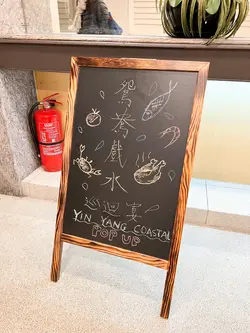 鴛鴦戲水
巡迴宴
YIN YANG COASTAL
POP UP